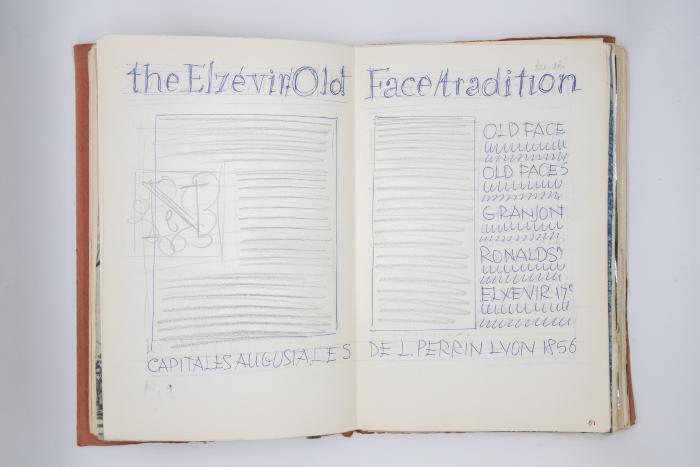 the Elzévir/Old Face/tradition
N
OLD FACE
OLD FACES
GRANJON
RONALDSn
ELXEVIR 17e
CAPITALES AUGUSTALES DE L. PERRIN LYON 1856
61